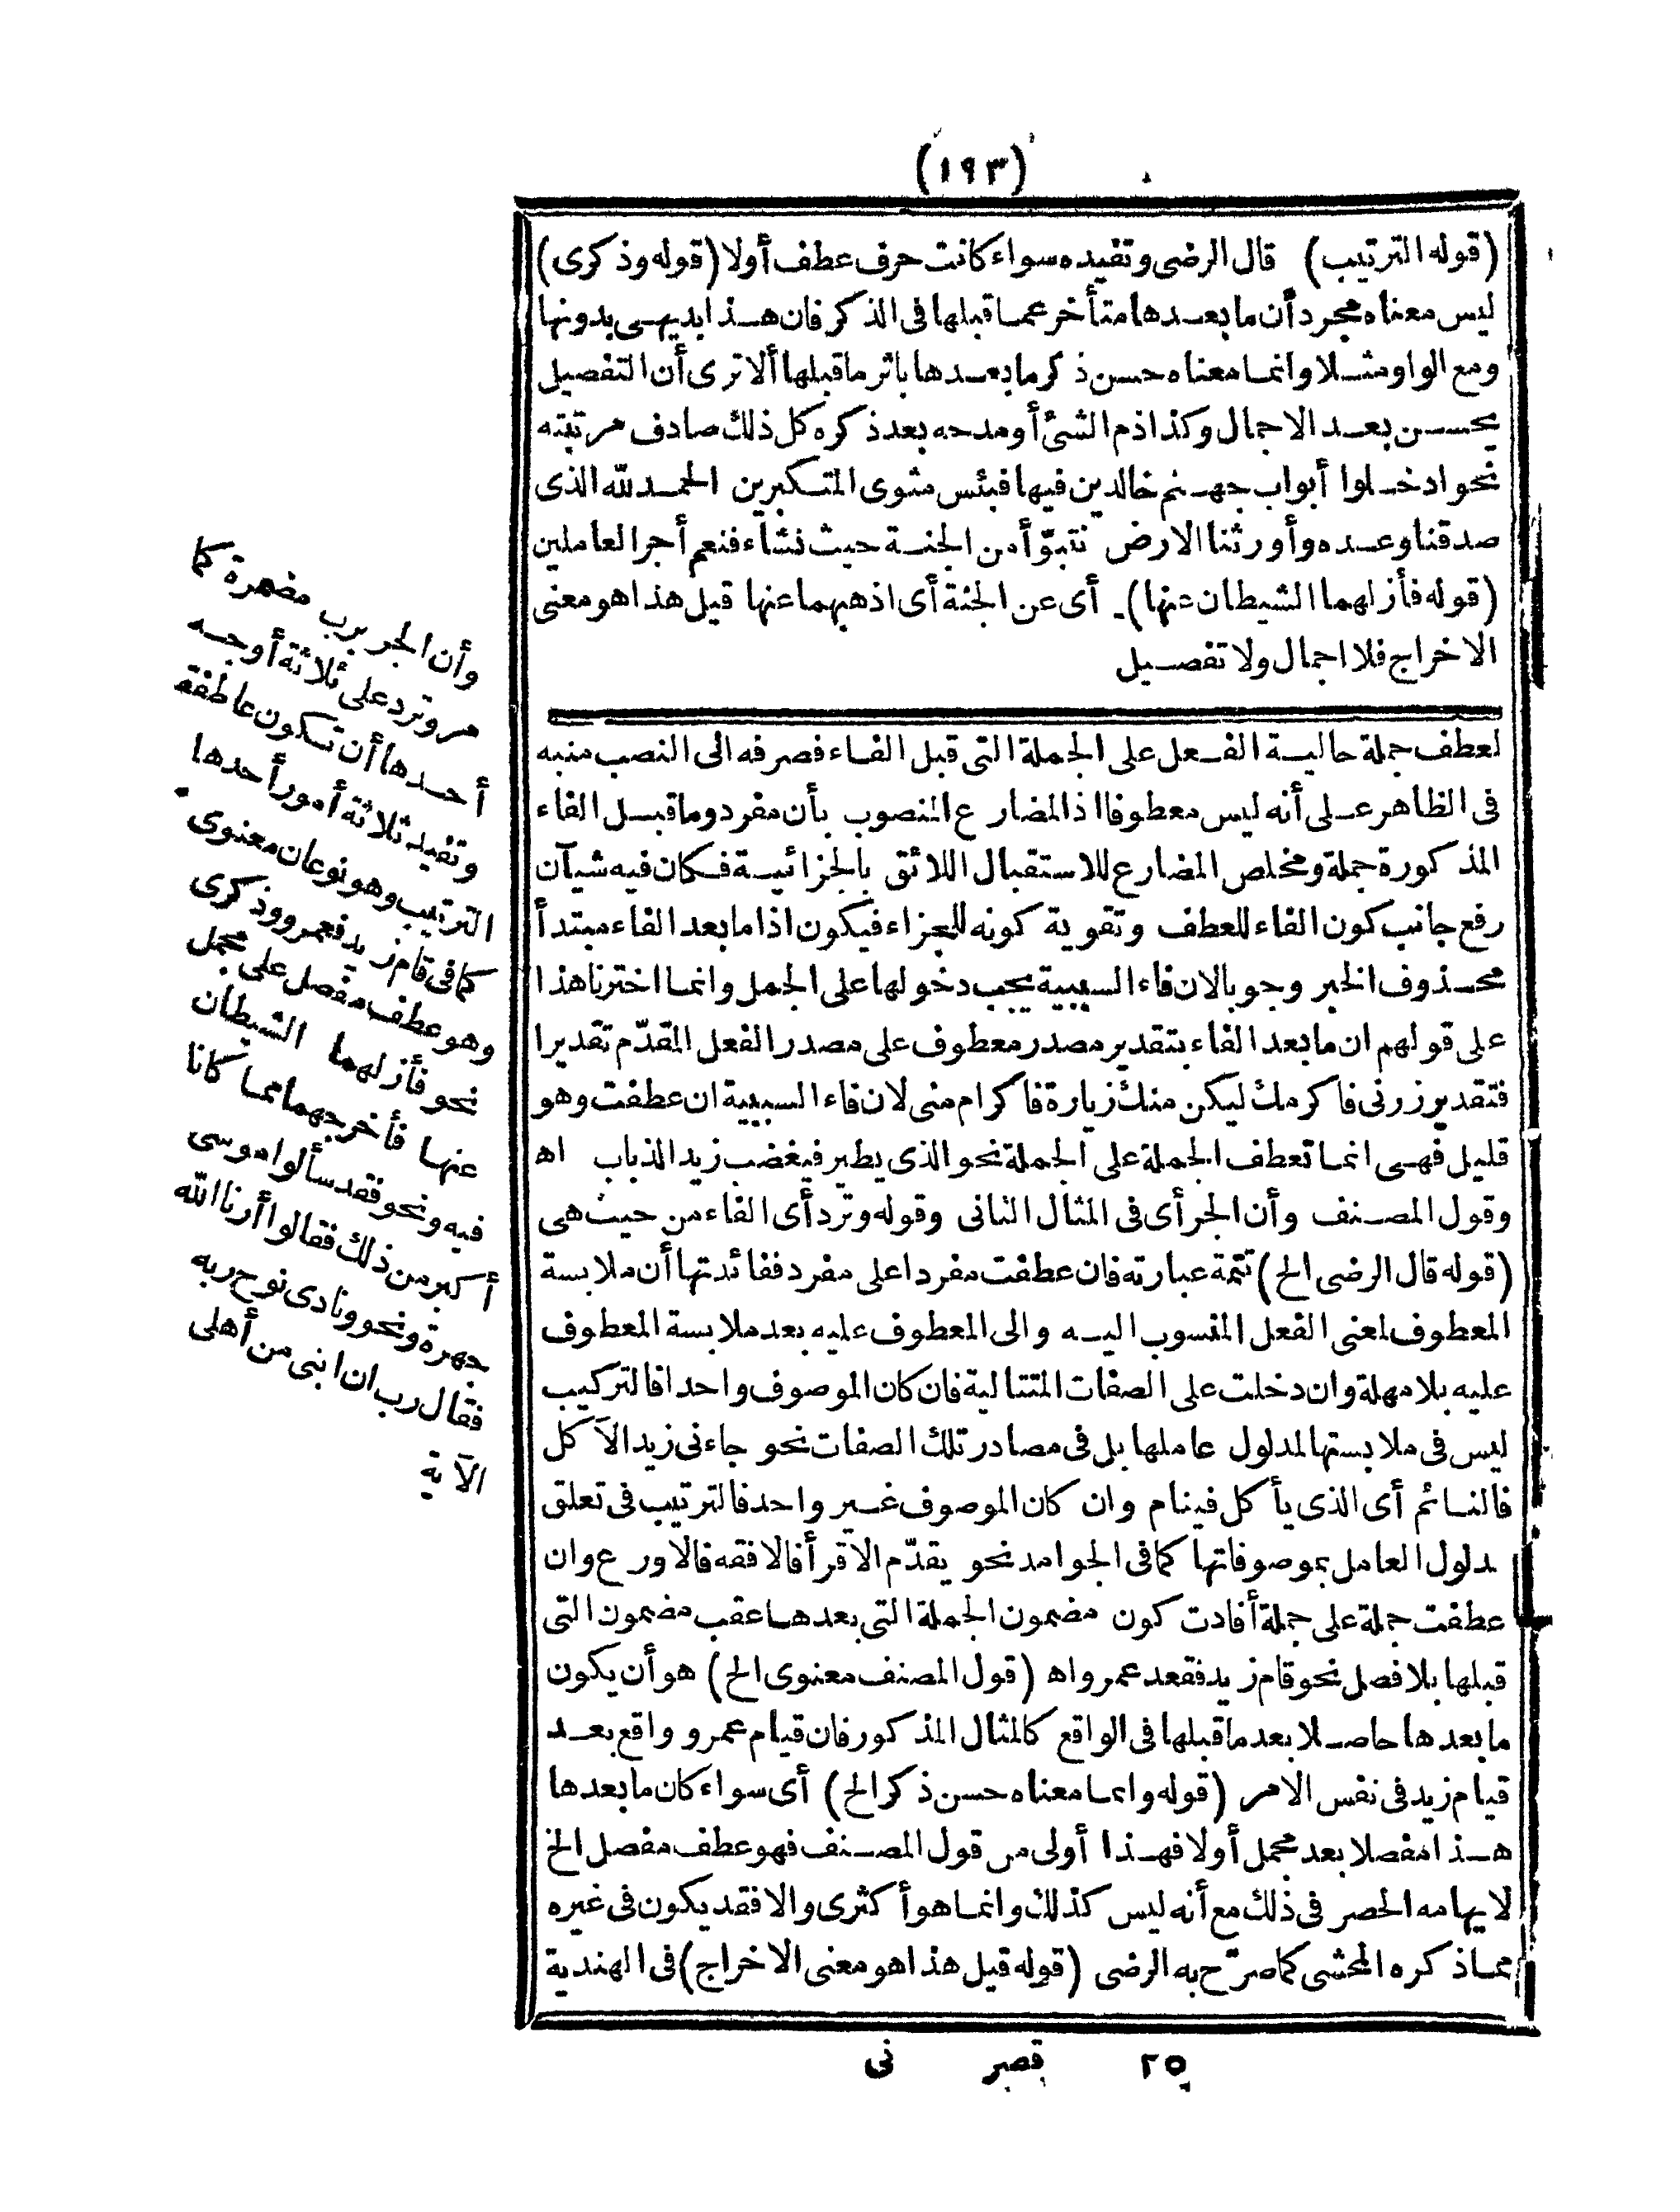 (١٩٣)
(قوله الترتيب) قال الرضى وتفيده سواء كانت حرف عطف أولا (قوله وذكرى)
ليس معناه مجرد أن ما بعدها متأخر عما قبلها فى الذكر فان هذا بديهى بدونها
ومع الواو مثلا وانما معناه حسن ذكر ما بعدها باثر ما قبلها ألا ترى أن التفصيل
يحسن بعد الاجمال وكذا ذم الشئ أو مدحه بعد ذكره كل ذلك صادف مرتبته
نحو ادخلوا أبواب جهنم خالدين فيها فبئس مثوى المتكبرين الحمد لله الذى
صدقنا وعده وأورثنا الارض نتبوّأ من الجنة حيث نشاء فنعم أجر العاملين
(قوله فأزلهما الشيطان عنها) أى عن الجنة أى اذهبهما عنها قيل هذا هو معنى
الاخراج فلا اجمال ولا تفصيل
لعطف جملة حالية الفعل على الجملة التى قبل الفاء فصرفه الى النصب منبه
فى الظاهر على أنه ليس معطوفا اذ المضارع المنصوب بأن مفرد وما قبل الفاء
المذكورة جملة ومخلص المضارع للاستقبال اللائق بالجزائية فكان فيه شيآن
رفع جانب كون الفاء للعطف وتقوية كونه للجزاء فيكون اذا ما بعد الفاء مبتدأ
محذوف الخبر وجوبا لان فاء السببية يجب دخولها على الجمل وانما اخترنا هذا
على قولهم ان ما بعد الفاء بتقدير مصدر معطوف على مصدر الفعل المقدّم تقديرا
فتقدير زرنى فاكرمك ليكن منك زيارة فاكرام منى لان فاء السببية ان عطفت وهو
قليل فهى انما تعطف الجملة على الجملة نحو الذى يطير فيغضب زيد الذباب اه
وقول المصنف وأن الجر أى فى المثال الثانى وقوله وترد أى الفاء من حيث هى
(قوله قال الرضى الخ) تتمة عبارته فان عطفت مفردا على مفرد ففائدتها أن ملابسة
المعطوف لمعنى الفعل المنسوب اليه والى المعطوف عليه بعد ملابسة المعطوف
عليه بلا مهلة وان دخلت على الصفات المتتالية فان كان الموصوف واحدا فالتركيب
ليس فى ملابستها لمدلول عاملها بل فى مصادر تلك الصفات نحو جاءنى زيد الآكل
فالنائم أى الذى يأكل فينام وان كان الموصوف غير واحد فالترتيب فى تعلق
مدلول العامل بموصوفاتها كما فى الجوامد نحو يقدّم الاقرأ فالافقه فالاورع وان
عطفت جملة على جملة أفادت كون مضمون الجملة التى بعدها عقب مضمون التى
قبلها بلا فصل نحو قام زيد فقعد عمرو اه (قول المصنف معنوى الخ) هو أن يكون
ما بعدها حاصلا بعد ما قبلها فى الواقع كالمثال المذكور فان قيام عمرو واقع بعد
قيام زيد فى نفس الامر (قوله وانما معناه حسن ذكر الخ) أى سواء كان ما بعدها
هذا مفصلا بعد مجمل أولا فهذا أولى من قول المصنف فهو عطف مفصل الخ
لايهامه الحصر فى ذلك مع أنه ليس كذلك وانما هو أكثرى والا فقد يكون فى غيره
مما ذكره المحشى كما صرّح به الرضى (قوله قيل هذا هو معنى الاخراج) فى الهندية
٢٥ قصر نى
وأن الجر برب مضمرة كما
مر وترد على ثلاثة أوجه
أحدها أن تكون عاطفة
وتفيد ثلاثة أمور أحدها
الترتيب وهو نوعان معنوى
كما فى قام زيد فعمرو وذكرى
وهو عطف مفصل على مجمل
نحو فأزلهما الشيطان
عنها فأخرجهما مما كانا
فيه ونحو فقد سألوا موسى
أكبر من ذلك فقالوا أرنا الله
جهرة ونحو ونادى نوح ربه
فقال رب ان ابنى من أهلى
الآية